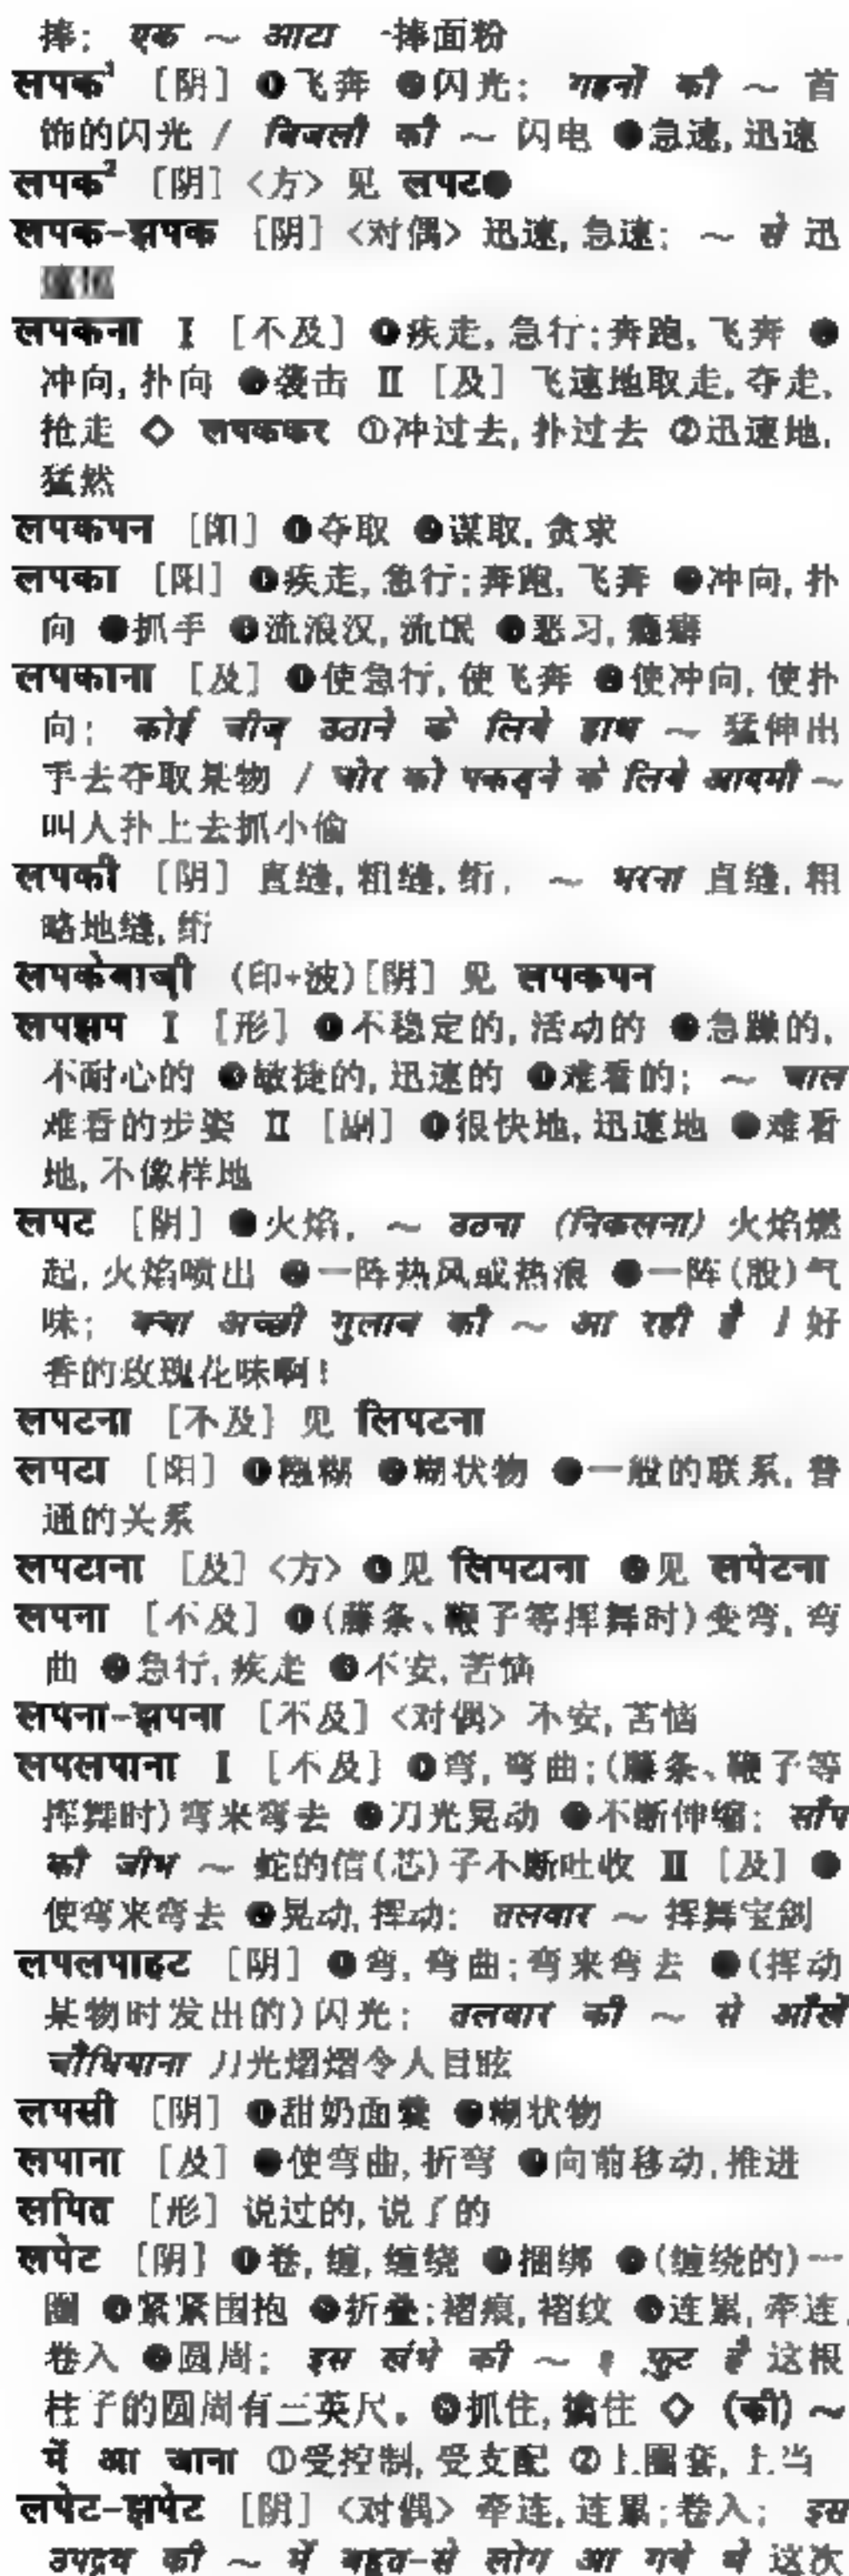 捧; एक ～ आटा 一捧面粉
लपक¹ [阴] ❶飞奔 ❷闪光; गहनों की ～ 首
饰的闪光 / बिजली की ～ 闪电 ❸急速, 迅速
लपक² [阴] <方> 见 लपट
लपक-झपक [阴] <对偶> 迅速, 急速; ～ से 迅
लपकना I [不及] ❶疾走, 急行; 奔跑, 飞奔 ❷
冲向, 扑向 ❸袭击 II [及] 飞速地取走, 夺走,
抢走 ◇ लपककर ①冲过去, 扑过去 ②迅速地,
猛然
लपकपन [阳] ❶夺取 ❷谋取, 贪求
लपका [阳] ❶疾走, 急行; 奔跑, 飞奔 ❷冲向, 扑
向 ❸抓手 ❹流浪汉, 流氓 ❺恶习, 瘾癖
लपकाना [及] ❶使急行, 使飞奔 ❷使冲向, 使扑
向; कोई चीज़ उठाने के लिये हाथ ～ 猛伸出
手去夺取某物 / चोर को पकड़ने के लिये आदमी ～
叫人扑上去抓小偷
लपकी [阴] 直缝, 粗缝, 绗. ～ भरना 直缝, 粗
略地缝, 绗
लपकेबाज़ी (印+波) [阴] 见 लपकपन
लपझप I [形] ❶不稳定的, 活动的 ❷急躁的,
不耐心的 ❸敏捷的, 迅速的 ❹难看的; ～ चाल
难看的步姿 II [副] ❶很快地, 迅速地 ❷难看
地, 不像样地
लपट [阴] ❶火焰, ～ उठना (निकलना) 火焰燃
起, 火焰喷出 ❷一阵热风或热浪 ❸一阵(股)气
味; क्या अच्छी गुलाब की ～ आ रही है । 好
香的玫瑰花味啊!
लपटना [不及] 见 लिपटना
लपटा [阳] ❶糨糊 ❷糊状物 ❸一般的联系, 普
通的关系
लपटाना [及] <方> ❶见 लिपटाना ❷见 लपेटना
लपना [不及] ❶(藤条、鞭子等挥舞时)变弯, 弯
曲 ❷急行, 疾走 ❸不安, 苦恼
लपना-झपना [不及] <对偶> 不安, 苦恼
लपलपाना I [不及] ❶弯, 弯曲; (藤条、鞭子等
挥舞时)弯来弯去 ❷刀光晃动 ❸不断伸缩; साँप
की जीभ ～ 蛇的信(芯)子不断吐收 II [及] ❶
使弯来弯去 ❷晃动, 挥动; तलवार ～ 挥舞宝剑
लपलपाहट [阴] ❶弯, 弯曲; 弯来弯去 ❷(挥动
某物时发出的)闪光; तलवार की ～ से आँखें
चौंधियाना 刀光熠熠令人目眩
लपसी [阴] ❶甜奶面羹 ❷糊状物
लपाना [及] ❶使弯曲, 折弯 ❷向前移动, 推进
लपित [形] 说过的, 说了的
लपेट [阴] ❶卷, 缠, 缠绕 ❷捆绑 ❸(缠绕的)一
圈 ❹紧紧围抱 ❺折叠; 褶痕, 褶纹 ❻连累, 牵连,
卷入 ❼圆周; इस खंभे की ～ ३ फ़ुट है 这根
柱子的圆周有三英尺。 ❽抓住, 擒住 ◇ (की) ～
में आ जाना ①受控制, 受支配 ②上圈套, 上当
लपेट-झपेट [阴] <对偶> 牵连, 连累; 卷入; इस
उपद्रव की ～ में बहुत-से लोग आ गये थे 这次